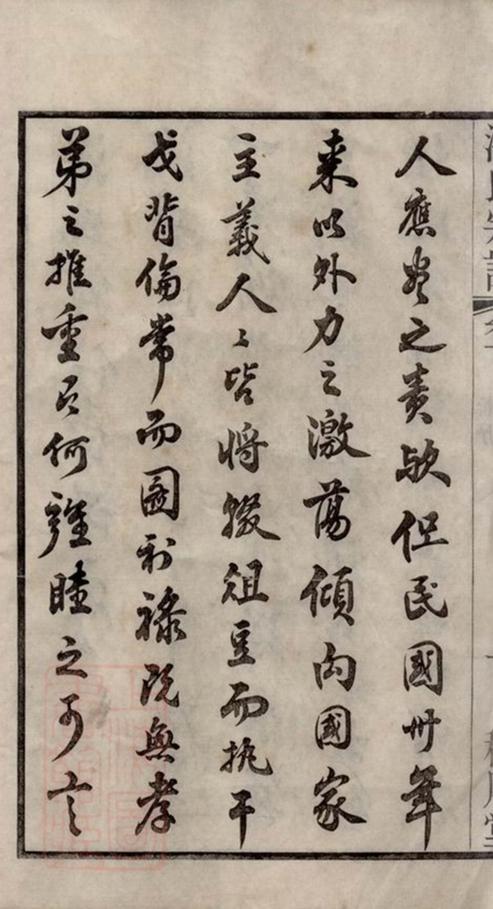 人應盡之責歟但民國卅年
來以外力之激蕩傾向國家
主義人々皆將輟俎豆而執干
戈背倫常而圖利祿既無孝
弟之推重何雍睦之可言